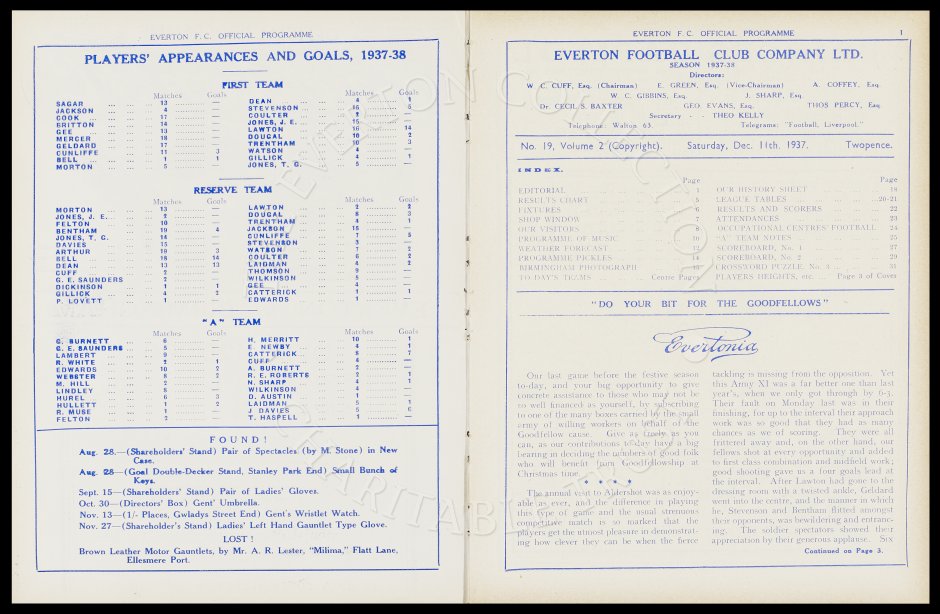 EVERTON F. C. OFFICIAL PROGRAMME
PLAYERS' APPEARANCES AND GOALS, 1937-38
FIRST TEAM
Matches Goals
SAGAR ... ... 13 ... —
JACKSON ... ... 4 ... —
COOK ... ... 17 ... —
BRITTON ... ... 14 ... —
GEE ... ... 13 ... —
MERCER ... ... 18 ... —
GELDARD ... ... 17 ... —
CUNLIFFE ... ... 11 ... 3
BELL ... ... 1 ... 1
MORTON ... ... 5 ... —
Matches Goals
DEAN ... ... 4 ... 1
STEVENSON ... ... 5
COULTER ... ... 2 ... —
JONES, J. E. ... 15 ... —
LAWTON ... ... 16 ... 14
DOUGAL ... ... 10 ... 2
TRENTHAM ... ... 10 ... 3
WATSON ... ... 4 ... —
GILLICK ... ... 4 ... 1
JONES, T. G. ... 5 ... —
RESERVE TEAM
MORTON ... ... 13 ... —
JONES, J. E. ... 2 ... —
FELTON ... ... 10 ... —
BENTHAM ... ... 19 ... 4
JONES, T. G. ... 14 ... —
DAVIES ... ... 15 ... —
ARTHUR ... ... 19 ... 3
BELL ... ... 16 ... 14
DEAN ... ... 13 ... 13
CUFF ... ... 2 ... —
G. E. SAUNDERS
DICKINSON ... ... 1 ... 1
GILLICK ... ... 4 ... 2
P. LOVETT ... ... 1 ... —
LAWTON ... ... 2 ... 2
DOUGAL ... ... 8 ... 3
TRENTHAM ... ... 4 ... 1
JACKSON ... ... 15 ... —
CUNLIFFE ... ... 7 ... 5
STEVENSON ... ... 3 ... —
WATSON ... ... 7 ... 2
COULTER ... ... 6 ... 2
LAIDMAN ... ... 4 ... 2
THOMSON ... ... 9 ... —
WILKINSON ... ... 5 ... —
GEE ... ... 4 ... —
CATTERICK ... ... 1 ... 1
EDWARDS ... ... 1 ... —
"A" TEAM
Matches Goals
G. BURNETT ... 6 ... —
G. E. SAUNDERS ... 5 ... —
LAMBERT ... ... 9 ... —
R. WHITE ... ... 2 ... 1
EDWARDS ... ... 10 ... 2
WEBSTER ... ... 8 ... 2
M. HILL ... ... 2 ... —
LINDLEY ... ... 8 ... —
HUREL ... ... 6 ... 3
HULLETT ... ... 1 ... 2
R. MUSE ... ... 1 ... —
FELTON ... ... 2 ... —
Matches Goals
H. MERRITT ... 10 ... 1
E. NEWBY ... ... 4 ... 1
CATTERICK ... ... 8 ... 7
CUFF ... ... 4 ... —
A. BURNETT ... 2 ... —
R. E. ROBERTS ... 2 ... 1
N. SHARP ... ... 4 ... 1
WILKINSON ... ... 4 ... —
D. AUSTIN ... ... 1 ... —
LAIDMAN ... ... 5 ... 1
J. DAVIES ... ... 5 ... 6
T. HASPELL ... 1 ... —
FOUND!
Aug. 28.—(Shareholders' Stand) Pair of Spectacles (by M. Stone) in New
Case.
Aug. 28—(Goal Double-Decker Stand, Stanley Park End) Small Bunch of
Keys.
Sept. 15—(Shareholders' Stand) Pair of Ladies' Gloves.
Oct. 30—(Directors' Box) Gent' Umbrella.
Nov. 13—(1/- Places, Gwladys Street End) Gent's Wristlet Watch.
Nov. 27—(Shareholder's Stand) Ladies' Left Hand Gauntlet Type Glove.
LOST!
Brown Leather Motor Gauntlets, by Mr. A. R. Lester, "Milima," Flatt Lane,
Ellesmere Port.
EVERTON F. C. OFFICIAL PROGRAMME 1
EVERTON FOOTBALL CLUB COMPANY LTD.
SEASON 1937-38
Directors:
W. C. CUFF, Esq. (Chairman) E. GREEN, Esq. (Vice-Chairman) A. COFFEY, Esq.
W. C. GIBBINS, Esq. J. SHARP, Esq.
Dr. CECIL S. BAXTER GEO. EVANS, Esq. THOS PERCY, Esq.
Secretary - - THEO KELLY
Telephone: Walton 63. Telegrams: "Football, Liverpool."
No. 19, Volume 2 (Copyright). Saturday, Dec. 11th. 1937. Twopence.
INDEX.
Page
EDITORIAL 1
RESULTS CHART 5
FIXTURES 6
SHOP WINDOW 7
OUR VISITORS 8
PROGRAMME OF MUSIC 10
WEATHER FORECAST 12
PROGRAMME PICKLES 14
BIRMINGHAM PHOTOGRAPH
TO-DAY'S TEAMS Centre Pages
Page
OUR HISTORY SHEET 18
LEAGUE TABLES 20-21
RESULTS AND SCORERS 22
ATTENDANCES 23
OCCUPATIONAL CENTRES' FOOTBALL 24
"A" TEAM NOTES 25
SCOREBOARD, No. 1 27
SCOREBOARD, No. 2 29
CROSSWORD PUZZLE, No. 3 31
PLAYERS HEIGHTS, etc. Page 3 of Cover
"DO YOUR BIT FOR THE GOODFELLOWS"
Evertonia
Our last game before the festive season
to-day, and your big opportunity to give
concrete assistance to those who may not be
so well financed as yourself, by subscribing
to one of the many boxes carried by the small
army of willing workers on behalf of the
Goodfellow cause. Give as freely as you
can, as our contributions to-day have a big
bearing in deciding the numbers of good folk
who will benefit from Goodfellowship at
Christmas time.
* * * *
The annual visit to Aldershot was as enjoy-
able as ever, and the difference in playing
this type of game and the usual strenuous
competitive match is so marked that the
players get the utmost pleasure in demonstrat-
ing how clever they can be when the fierce
tackling is missing from the opposition. Yet
this Army XI was a far better one than last
year's, when we only got through by 6-5.
Their fault on Monday last was in their
finishing, for up to the interval their approach
work was so good that they had as many
chances as we of scoring. They were all
frittered away and, on the other hand, our
fellows shot at every opportunity and added
to first class combination and midfield work;
good shooting gave us a four goals lead at
the interval. After Lawton had gone to the
dressing room with a twisted ankle, Geldard
went into the centre, and the manner in which
he, Stevenson and Bentham flitted amongst
their opponents, was bewildering and entranc-
ing. The soldier spectators showed their
appreciation by their generous applause. Six
Continued on Page 3.
EVERTON COLLECTION
CHARITABLE